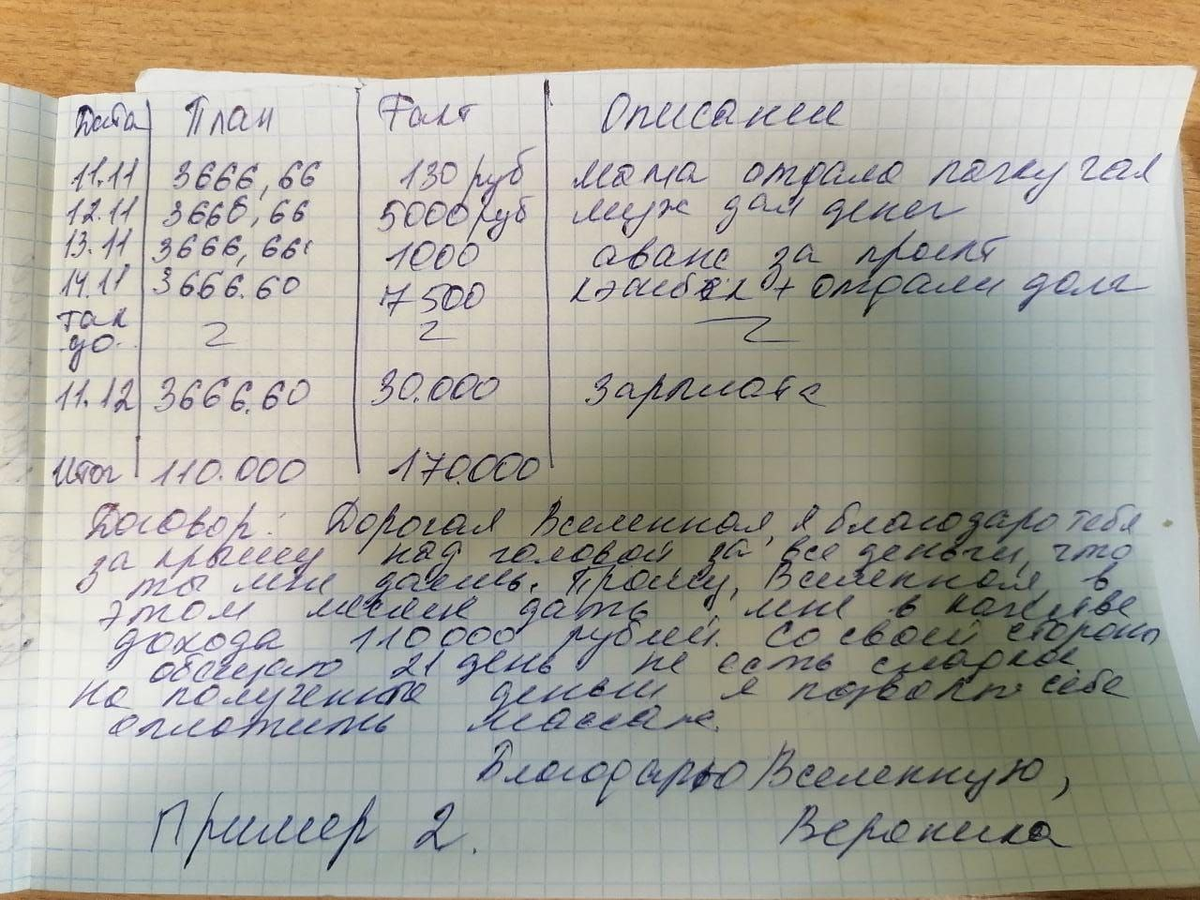 Дата План Факт Описание
11.11 3666,66 130 руб мама отдала пачку чая
12.11 3666,66 5000 руб муж дал денег
13.11 3666,66 1000 аванс за проект
14.11 3666.60 7500 кэшбэк + отдали долг
так
до.
11.12 3666.60 30.000 Зарплата
Итог 110.000 170.000
Договор: Дорогая Вселенная, я благодарю тебя
за крышу над головой за все деньги, что
ты мне даешь. Прошу, Вселенная, в
этом месяце дать мне в качестве
дохода 110000 рублей. Со своей стороны
обещаю 21 день не есть сладкое
На полученные деньги я позволю себе
оплатить массаж.
Благодарю Вселенную,
Пример 2. Вероника